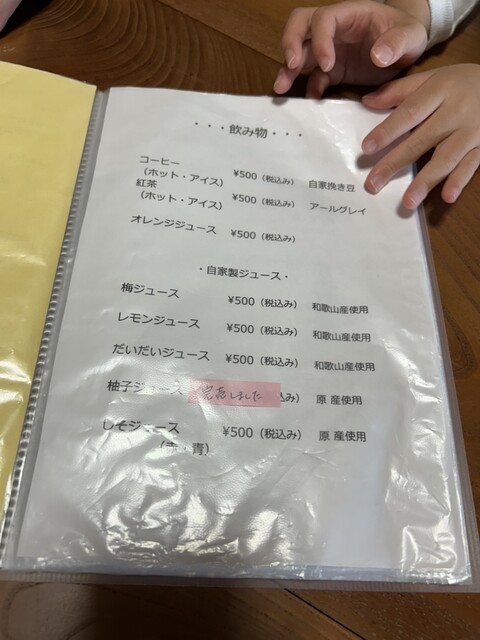 ・・・飲み物・・・
コーヒー
（ホット・アイス） ¥500（税込み） 自家挽き豆
紅茶
（ホット・アイス） ¥500（税込み） アールグレイ
オレンジジュース ¥500（税込み）
・自家製ジュース・
梅ジュース ¥500（税込み） 和歌山産使用
レモンジュース ¥500（税込み） 和歌山産使用
だいだいジュース ¥500（税込み） 和歌山産使用
柚子ジュース 完売しました み） 原 産使用
しそジュース ¥500（税込み） 原 産使用
（赤・青）